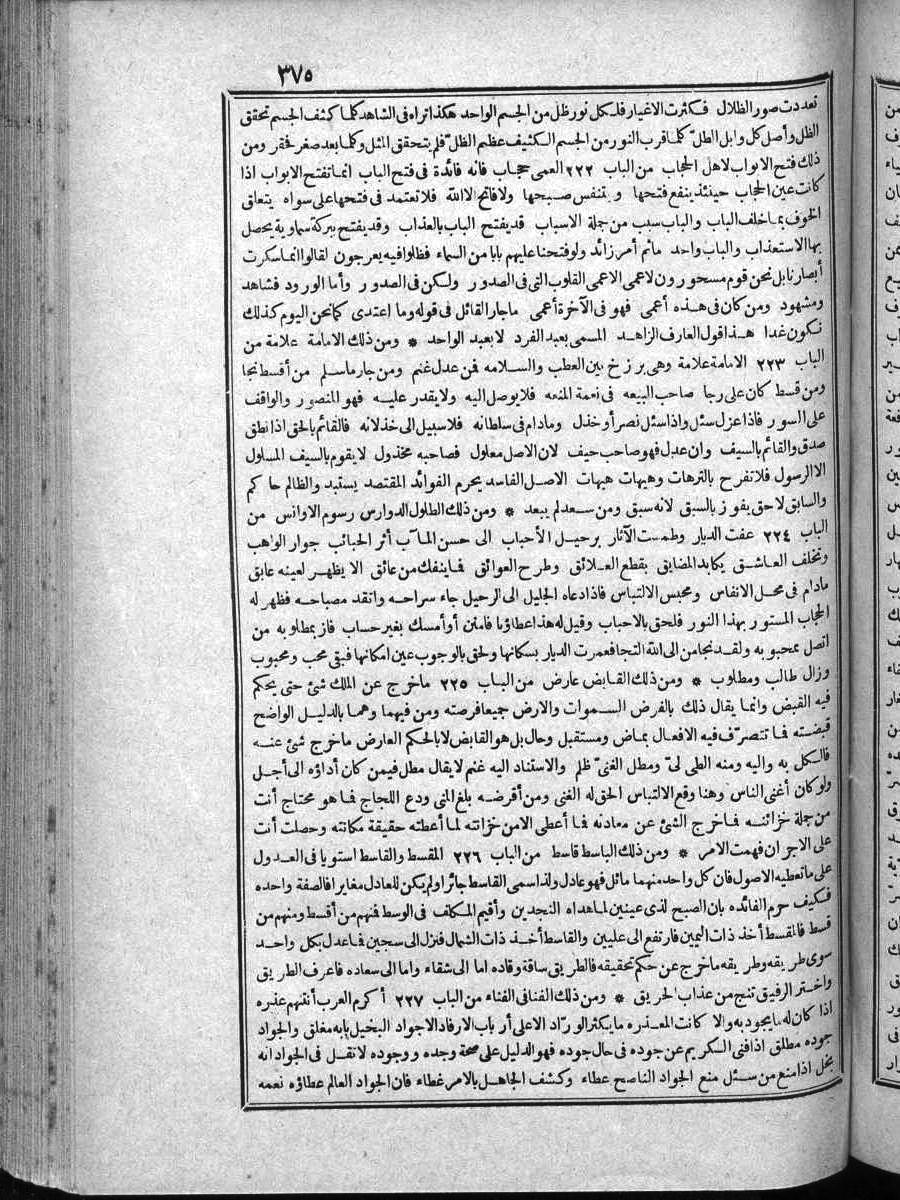 ٣٧٥
تعددت صور الظلال فكثرت الاغيار فلكل نور ظل من الجسم الواحد هكذا تراه فى الشاهد كلما كشف الجسم تحقق
الظل وأصل كل وابل الطل كلما قرب النور من الجسم الكثيف عظم الظل فلم يتحقق المثل وكلما بعد صغر فحقر ومن
ذلك فتح الابواب لاهل الحجاب من الباب ٢٢٢ العمى حجاب فانه فائدة فى فتح الباب انما تفتح الابواب اذا
كانت عين الحجاب حينئذ ينفع فتحها ويتنفس صبحها ولا فاتح الا الله فلا تعتمد فى فتحها على سواه يتعلق
الخوف بما خلف الباب والباب سبب من جملة الاسباب قد يفتح الباب بالعذاب وقد يفتح ببركة سماوية يحصل
بها الاستعذاب والباب واحد ما ثم أمر زائد ولو فتحنا عليهم بابا من السماء فظلوا فيه يعرجون لقالوا انما سكرت
أبصارنا بل نحن قوم مسحورون لا عمى الا عمى القلوب التى فى الصدور ولكن فى الصدور وأما الورود فشاهد
ومشهود ومن كان فى هذه أعمى فهو فى الآخرة أعمى ما جار القائل فى قوله وما اعتدى كما نحن اليوم كذلك
نكون غدا هذا قول العارف الزاهد المسمى بعبد الفرد لا بعبد الواحد * ومن ذلك الامامة علامة من
الباب ٢٢٣ الامامة علامة وهى برزخ بين العطب والسلامه فمن عدل غنم ومن جار ما سلم من أقسط نجا
ومن قسط كان على رجا صاحب البيعه فى نعمة المنعه فلا يوصل اليه ولا يقدر عليه فهو المنصور والواقف
على السور فاذا عزل سئل واذا سئل نصر أو خذل ومادام فى سلطانه فلا سبيل الى خذلانه فالقائم بالحق اذا نطق
صدق والقائم بالسيف وان عدل فهو صاحب حيف لان الاصل معلول فصاحبه مخذول لا يقوم بالسيف المسلول
الا الرسول فلا تفرح بالترهات وهيهات هيهات الاصل الفاسد يحرم الفوائد المقتصد يستبد والظالم حاكم
والسابق لاحق يفوز بالسبق لانه سبق ومن سعد لم يبعد * ومن ذلك الطلول الدوارس رسوم الاوانس من
الباب ٢٢٤ عفت الديار وطمست الآثار برحيل الأحباب الى حسن المآب أثر الحبائب جوار الواهب
وتخلف العاشق يكابد المضايق بقطع العلائق وطرح العوائق فما ينفك من عائق الا يظهر لعينه عابق
مادام فى محل الانفاس ومحبس الالتباس فاذا دعاه الجليل الى الرحيل جاء سراحه واتقد مصباحه فظهر له
الحجاب المستور بهذا النور فلحق بالاحباب وقيل له هذا عطاؤنا فامنن أو أمسك بغير حساب فاز بمطلوبه من
اتصل بمحبوبه ولقد نجا من الى الله التجا فعمرت الديار بسكانها ولحق بالوجوب عين امكانها فبقى محب ومحبوب
وزال طالب ومطلوب * ومن ذلك القابض عارض من الباب ٢٢٥ ما خرج عن الملك شئ حتى يحكم
فيه القبض وانما يقال ذلك بالفرض السموات والارض جميعا فرضته ومن فيهما وهما بالدليل الواضح
قبضته فما تتصرّف فيه الافعال بماض ومستقبل وحال بل هو القابض لا بالحكم العارض ما خرج شئ عنه
فالكل به واليه ومنه الطى لىّ ومطل الغنىّ ظلم والاستناد اليه غنم لا يقال مطل فيمن كان أداؤه الى أجل
ولو كان أغنى الناس وهنا وقع الالتباس الحق له الغنى ومن أقرضه بلغ المنى ودع اللجاج فما هو محتاج أنت
من جملة خزائنه فما خرج الشئ عن معادنه فما أعطى الا من خزانته لما أعطته حقيقة مكانته وحصلت أنت
على الاجر ان فهمت الامر * ومن ذلك الباسط قاسط من الباب ٢٢٦ المقسط والقاسط استويا فى العدول
على ما تعطيه الاصول فان كل واحد منهما مائل فهو عادل ولذا سمى القاسط جائرا ولم يكن للعادل مغايرا فالصفة واحده
فكيف حرم الفائده بان الصبح لذى عينين لما هداه النجدين وأقيم المكلف فى الوسط فمنهم من أقسط ومنهم من
قسط فالمقسط أخذ ذات اليمين فارتفع الى عليين والقاسط أخذ ذات الشمال فنزل الى سجين فما عدل بكل واحد
سوى طريقه وطريقه ما خرج عن حكم تحقيقه فالطريق ساقه وقاده اما الى شقاء واما الى سعاده فاعرف الطريق
واختر الرفيق تنج من عذاب الحريق * ومن ذلك الفنا فى الفناء من الباب ٢٢٧ أكرم العرب أنقنهم عذره
اذا كان له ما يجود به والا كانت المعذره ما يكثر الورّاد الا على أرباب الارفاد الاجواد البخيل بابه مغلق والجواد
جوده مطلق اذا فنى الكريم عن جوده فى حال جوده فهو الدليل على صحة وجده ووجوده لا تقل فى الجواد انه
بخل اذا منع من سئل منع الجواد الناصح عطاء وكشف الجاهل بالامر غطاء فان الجواد العالم عطاؤه نعمه